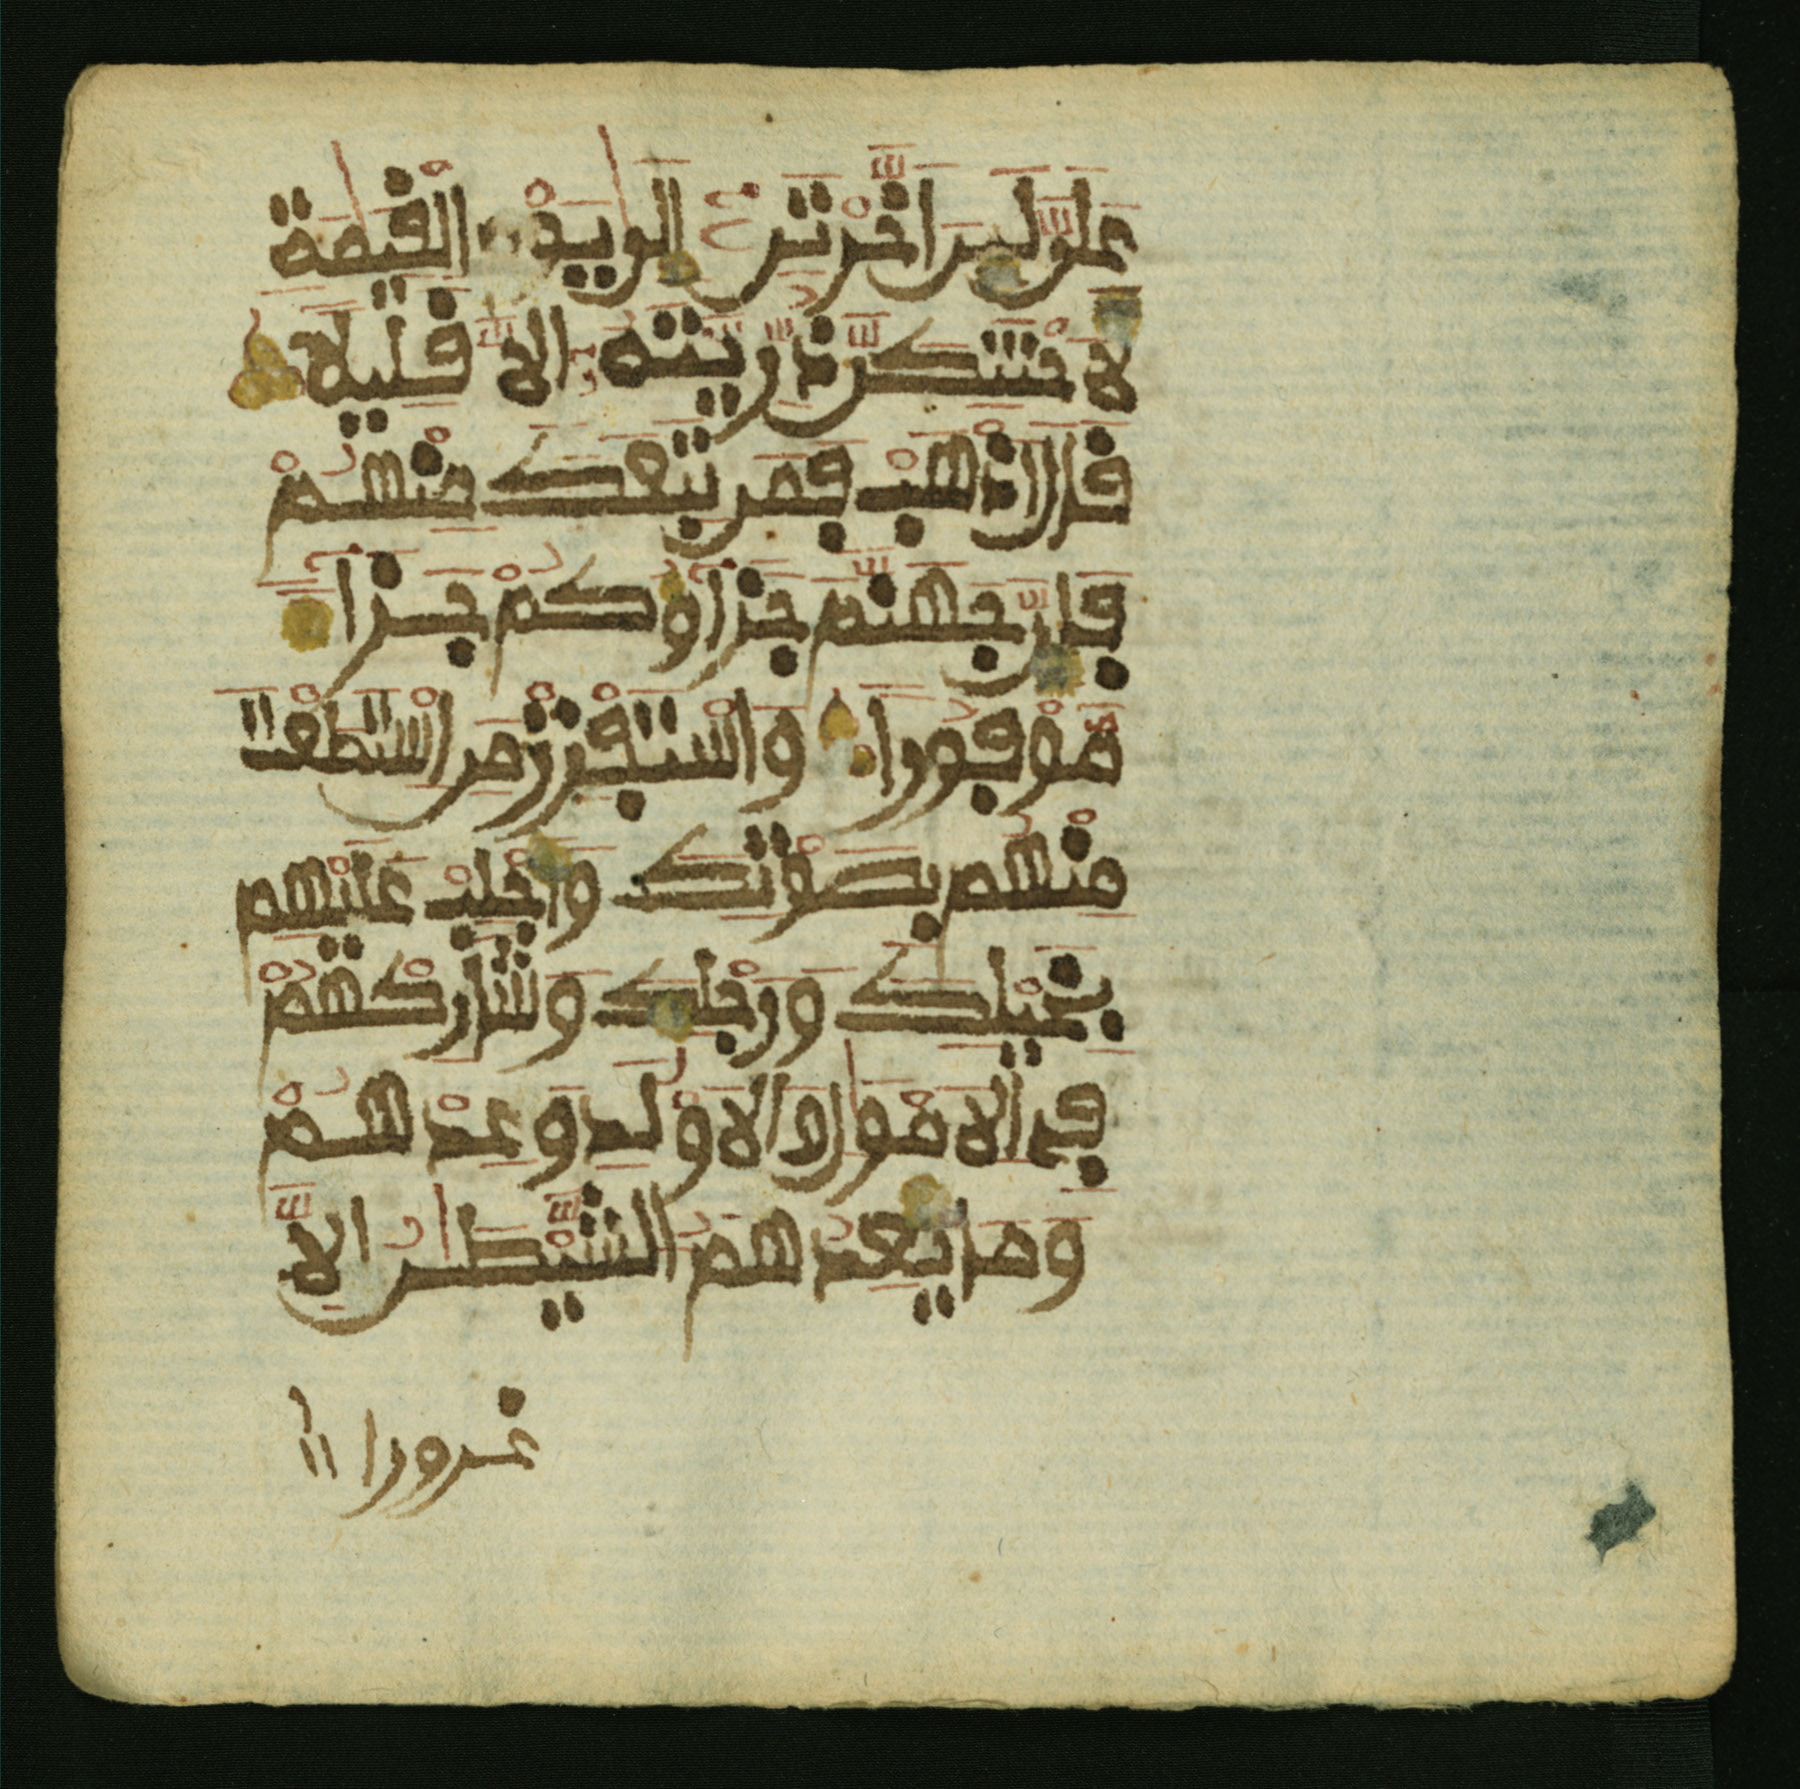 علي لين اخرتن الي يوم القيمة
لاحتنكن ذريته الا قليلا
قال اذهب فمن تبعك منهم
فان جهنم جزاؤكم جزا
موفورا واستفزز من استطعت
منهم بصوتك واجلب عليهم
بخيلك ورجلك وشاركهم
في الامول والاولد وعدهم
وما يعدهم الشيطن الا
غرورا